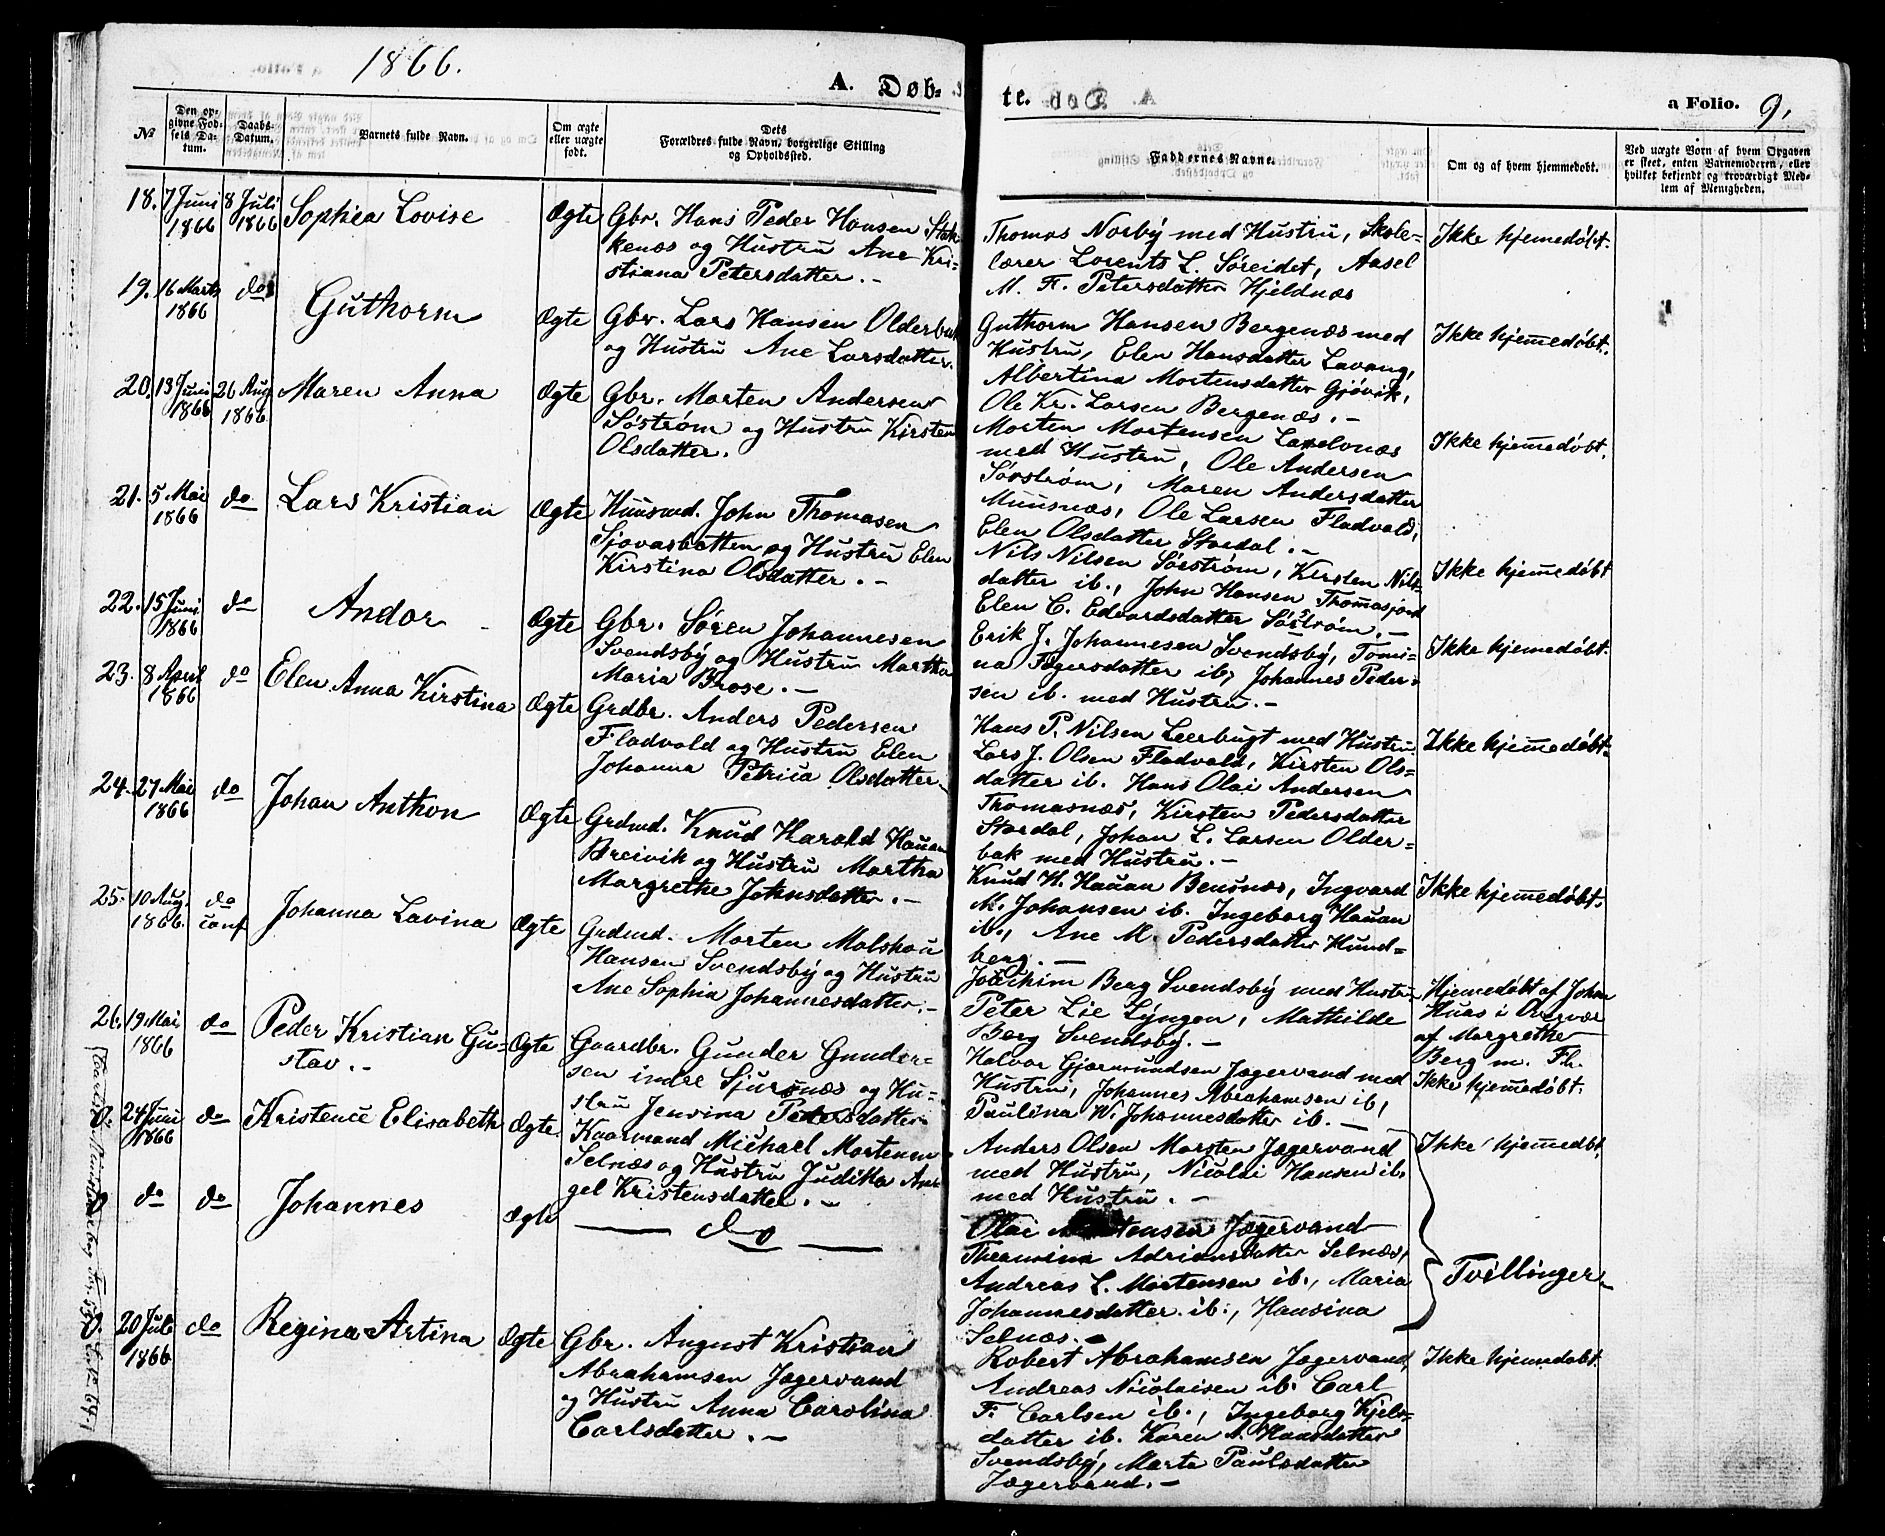 1866.
A. Døb-
te.
a Folio. 9.
№
Den op-
givne Fød-
sels Da-
tum.
Daabs-
Datum.
Barnets fulde Navn.
Om ægte
eller uægte
født.
Dets
Forældres fulde Navn, borgerlige Stilling
og Opholdssted.
Faddernes Navne.
Om og af hvem hjemmedøbt.
Ved uægte Børn af hvem Opgaven
er skeet, enten Barnemoderen, eller
hvilket bekjendt og troværdigt Med-
lem af Menigheden.
18. 7 Juni 1866
8 Juli 1866
Sophia Lovise
Ægte
Gbr. Hans Peder Hansen Stak-
kenæs og Hustru Ane Kri-
stiana Petersdatter. -
Thomas Norby med Hustru, Skole-
lærer Lorents L. Søreidet, Aasel
M. F. Petersdatter Hjeldnæs
Ikke hjemedøbt.
19. 16 Marts 1866
do
Guthorm
Ægte
Gbr. Lars Hansen Olderbak
og Hustru Ane Larsdatter.
Guthorm Hansen Bergenæs med
Hustru, Elen Hansdatter Lavang,
Albertina Mortensdatter Gjøvik,
Ole Kr. Larsen Bergenæs. -
Ikke hjemedøbt.
20. 13 Juni 1866
26 Aug 1866
Maren Anna
Ægte
Gbr. Morten Andersen
Søstrøm og Hustru Kirsten
Olsdatter.
Morten Mortensen Laxelvnæs
med Hustru, Ole Andersen
Sørstrøm, Maren Andersdatter
Muusnæs, Ole Larsen Fladvold,
Elen Olsdatter Stordal. -
Ikke hjemedøbt.
21. 5 Mai 1866
do
Lars Kristian
Ægte
Huusmd. John Thomasen
Sjovasbotten og Hustru Elen
Kirstina Olsdatter. -
Nils Nilsen Sørstrøm, Kirsten Nils-
datter ib., John Hansen Thomasjord
Elen C. Edvardsdatter Søstrøm. -
Ikke hjemedøbt
22. 15 Juni 1866
do
Andor
Ægte
Gbr. Søren Johannesen
Svendsby og Hustru Martha
Maria Brose. -
Erik J. Johannesen Svendsby, Tomi-
na Fægersdatter ib, Johannes Peder-
sen ib. med Hustru. -
Ikke hjemedøbt.
23. 8 April 1866
do
Elen Anna Kirstina
Ægte
Grdbr. Anders Pedersen
Fladvold og Hustru Elen
Johanna Petrica Olsdatter.
Hans P. Nilsen Leerbugt med Hustru
Lars J. Olsen Fladvold, Kirsten Ols-
datter ib. Hans Olai Andersen
Thomasnæs, Kirsten Pedersdatter
Stordal, Johan L. Larsen Older-
bak med Hustru. -
Ikke hjemedøbt.
24. 27 Mai 1866
do
Johan Anthon
Ægte
Grdmd. Knud Harald Hauan
Breivik og Hustru Martha
Margrethe Johnsdatter. -
Knud H. Hauan Bensnæs, Ingvard
M. Johansen ib. Ingeborg Hauan
ib., Ane M. Pedersdatter Hund-
berg. -
Ikke hjemedøbt.
25. 10 Aug. 1866.
do conf
Johanna Lavina
Ægte
Grdmd. Morten Malshou
Hansen Svendsby og Hustru
Ane Sophia Johannesdatter. -
Jochim Berg Svendsby med Hustru
Peter Lie Lyngen, Mathilde
Berg Svendsby. -
Hjemedøbt af Johan
Huas i Overvær
af Margrethe
Berg m. Fl.
26. 19 Mai 1866
do
Peder Kristian Gu-
stav. -
Ægte
Gaardbr. Gunder Gunder-
sen indre Sjursnæs og Hu-
stru Jensina Petersdatter
Halvor Gjermundsen Jægervand med
Hustru, Johannes Abrahamsen ib,
Paulina W. Johannesdatter ib. -
Ikke hjemedøbt.
24 Juni 1866
do
Kristence Elisabeth
Ægte
Kaarmand Michael Mortensen
Selnæs og Hustru Juditha An-
gel Kristensdatter. -
Anders Olsen Marsten Jægervand
med Hustru, Nicolai Hansen ib.
med Hustru. -
Ikke hjemmedbt.
do
do
Johannes
Ægte
do
Olai Mortensen Jægervand
Theansina Adriansdatter Selnæs,
Andreas L. Mortensen ib., Maria
Johannesdatter ib., Hansina
Selnæs. -
Tvillinger
20 Juli 1866
do
Regina Artina
Ægte
Gbr. August Kristian
Abrahamsen Jægervand
og Hustru Anna Carolina
Carlsdatter. -
Robert Abrahamsen Jægervand,
Andreas Nicolaisen ib. Carl
F. Carlsen ib., Ingeborg Kjels-
datter ib. Karen A. Hansdatter
Svendsby, Marta Paulsdatter
Jægervand. -
Ikke hjemedøbt